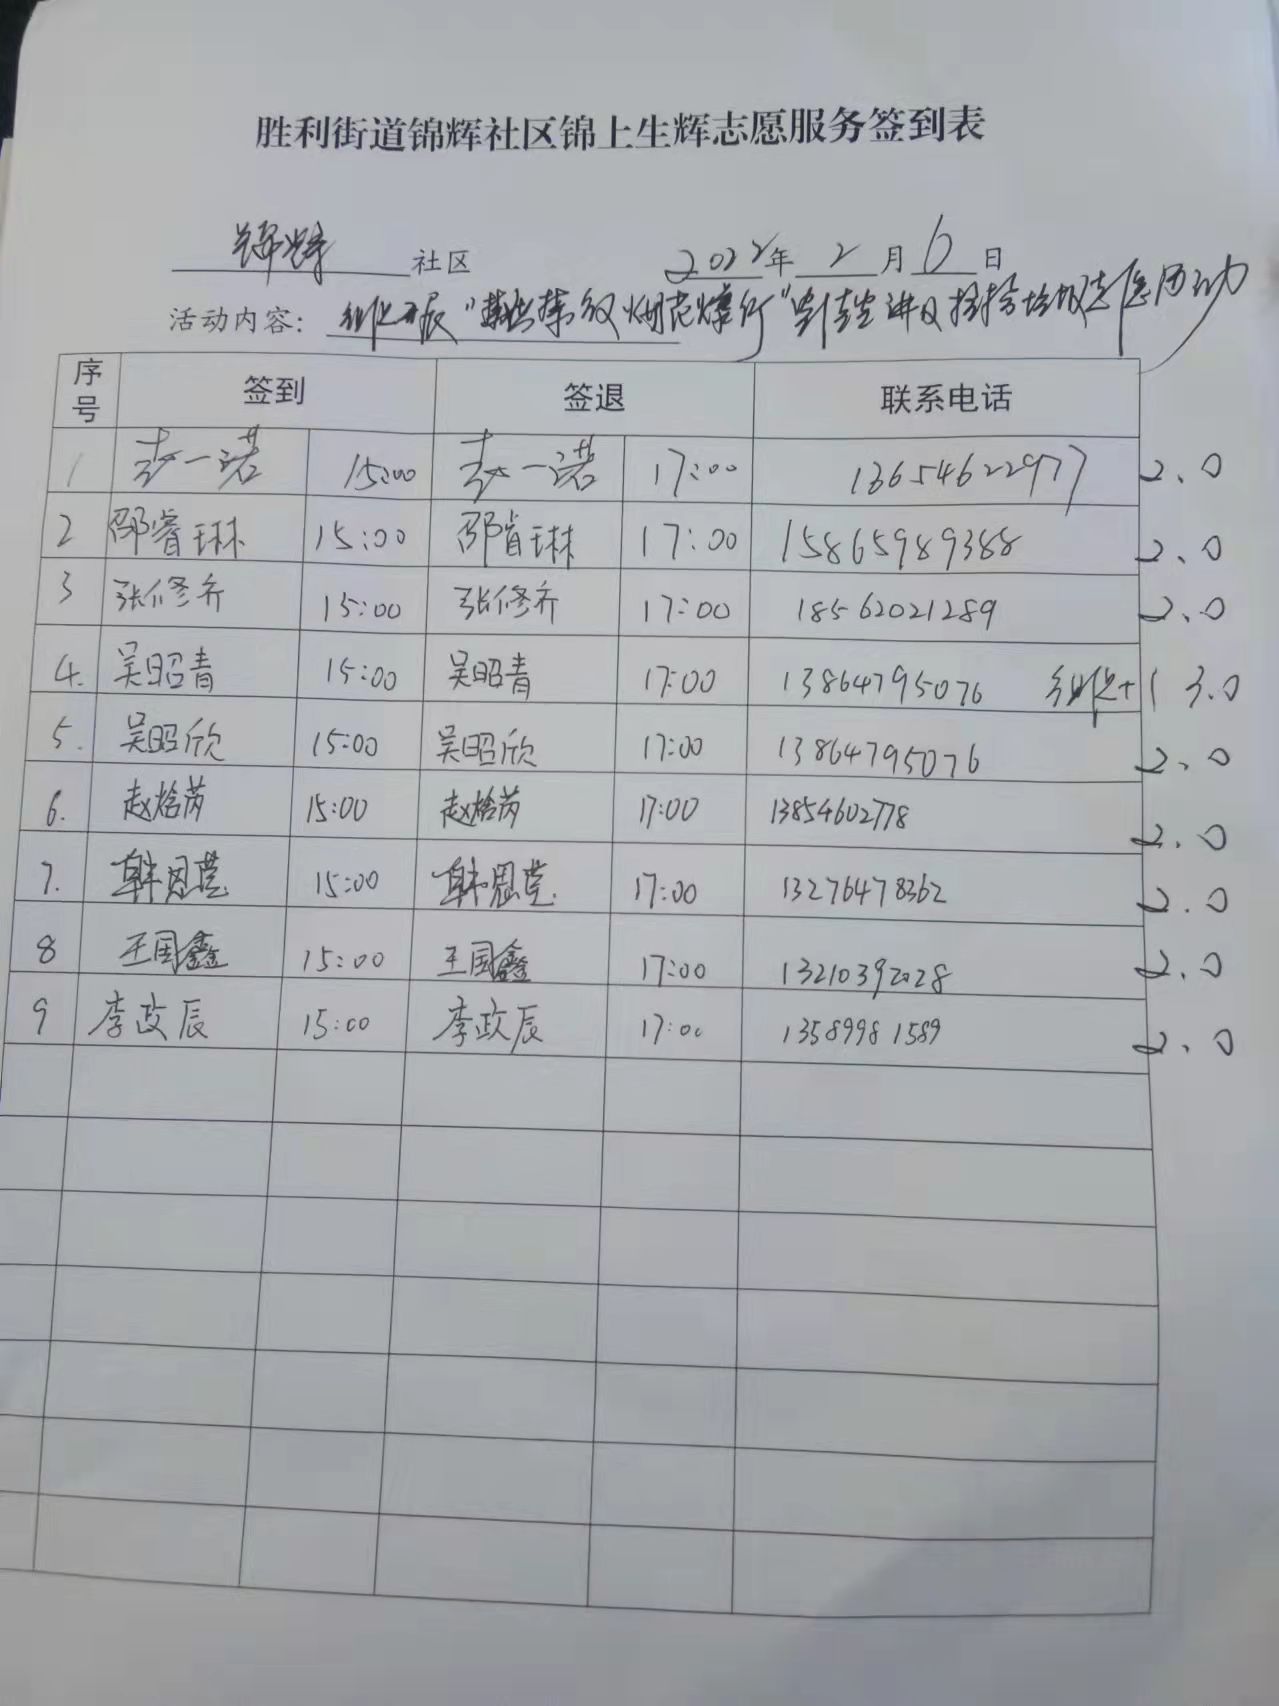 胜利街道锦辉社区锦上生辉志愿服务签到表
锦辉 社区 2022年 2 月 6 日
活动内容: 组织开展"禁燃禁放烟花爆竹"宣讲及捡拾垃圾志愿活动
序号 签到 签退 联系电话
1 李一诺 15:00 李一诺 17:00 13654622977 2.0
2 邵睿琳 15:00 邵睿琳 17:00 15865989388 2.0
3 张修齐 15:00 张修齐 17:00 18562021289 2.0
4. 吴昭青 15:00 吴昭青 17:00 13864795076 组织+1 3.0
5. 吴昭欣 15:00 吴昭欣 17:00 13864795076 2.0
6. 赵焓芮 15:00 赵焓芮 17:00 13854602778 2.0
7. 韩恩 15:00 韩恩 17:00 13276478362 2.0
8 王国鑫 15:00 王国鑫 17:00 13210392028 2.0
9 李政辰 15:00 李政辰 17:00 13589981589 2.0